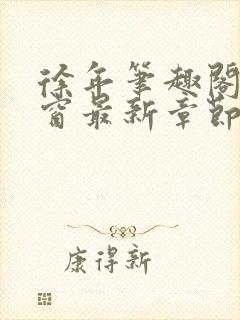 徐年笔趣阁
窗最新章节
康得新